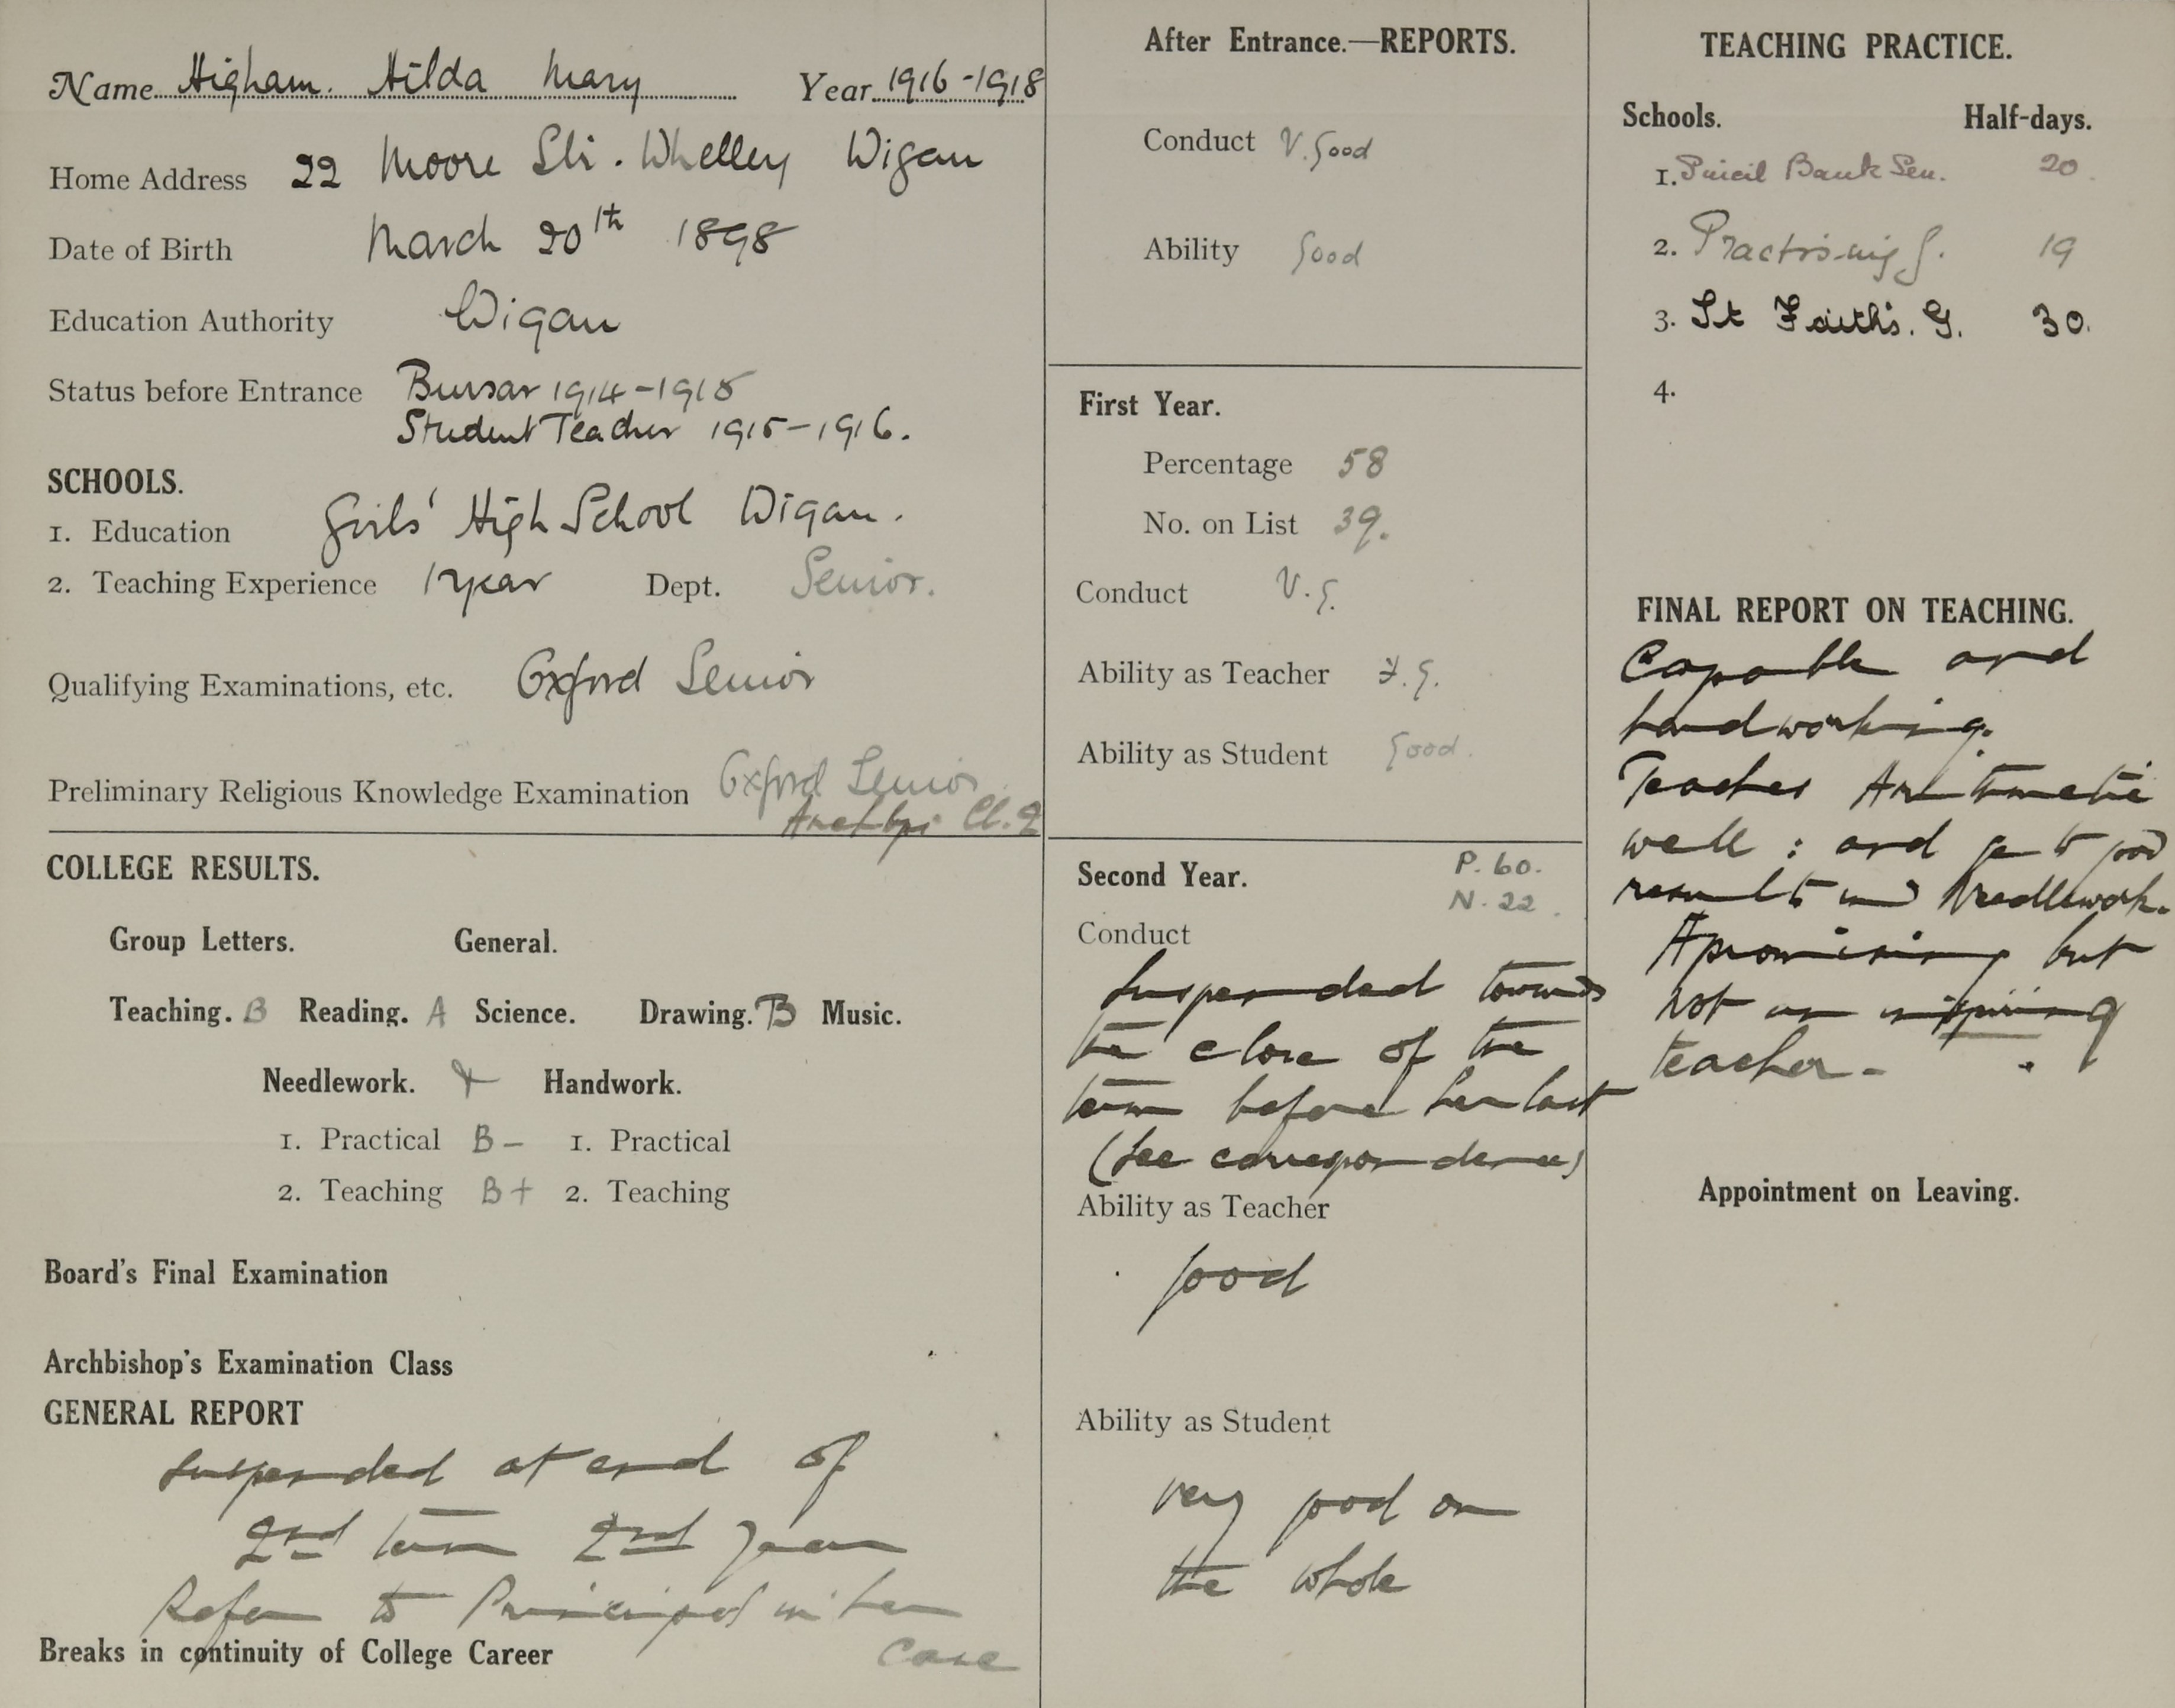 Name Higham. Hilda Mary Year 1916-1918
Home Address 22 Moore Str. Whelley Wigan
Date of Birth March 20th 1898
Education Authority Wigan
Status before Entrance Bursar 1914-1915
Student Teacher 1915-1916.
SCHOOLS.
1. Education Girls' High School Wigan.
2. Teaching Experience 1 year Dept. Senior.
Qualifying Examinations, etc. Oxford Senior
Preliminary Religious Knowledge Examination Oxford Senior
Archbps Cl. 2
COLLEGE RESULTS.
Group Letters. General.
Teaching. B Reading. A Science. Drawing. B Music.
Needlework. Handwork.
1. Practical B- 1. Practical
2. Teaching B+ 2. Teaching
Board's Final Examination
Archbishop's Examination Class
GENERAL REPORT
Suspended at end of
2nd term 2nd year
Refer to Principal in her
case
Breaks in continuity of College Career
After Entrance.—REPORTS.
Conduct V. Good
Ability Good
First Year.
Percentage 58
No. on List 39.
Conduct V. G.
Ability as Teacher F. G.
Ability as Student Good.
Second Year. P. 60.
N. 22.
Conduct
Suspended towards
the close of the
term before her last
(See correspondence)
Ability as Teacher
good
Ability as Student
very good on
the whole
TEACHING PRACTICE.
Schools. Half-days.
1. Bank Sen. 20.
2. Practising G. 19
3. St Faith's. G. 30.
4.
FINAL REPORT ON TEACHING.
Capable and
hardworking.
Teaches Arithmetic
well : and gets good
results in Needlework.
A promising but
not an inspiring
teacher -
Appointment on Leaving.